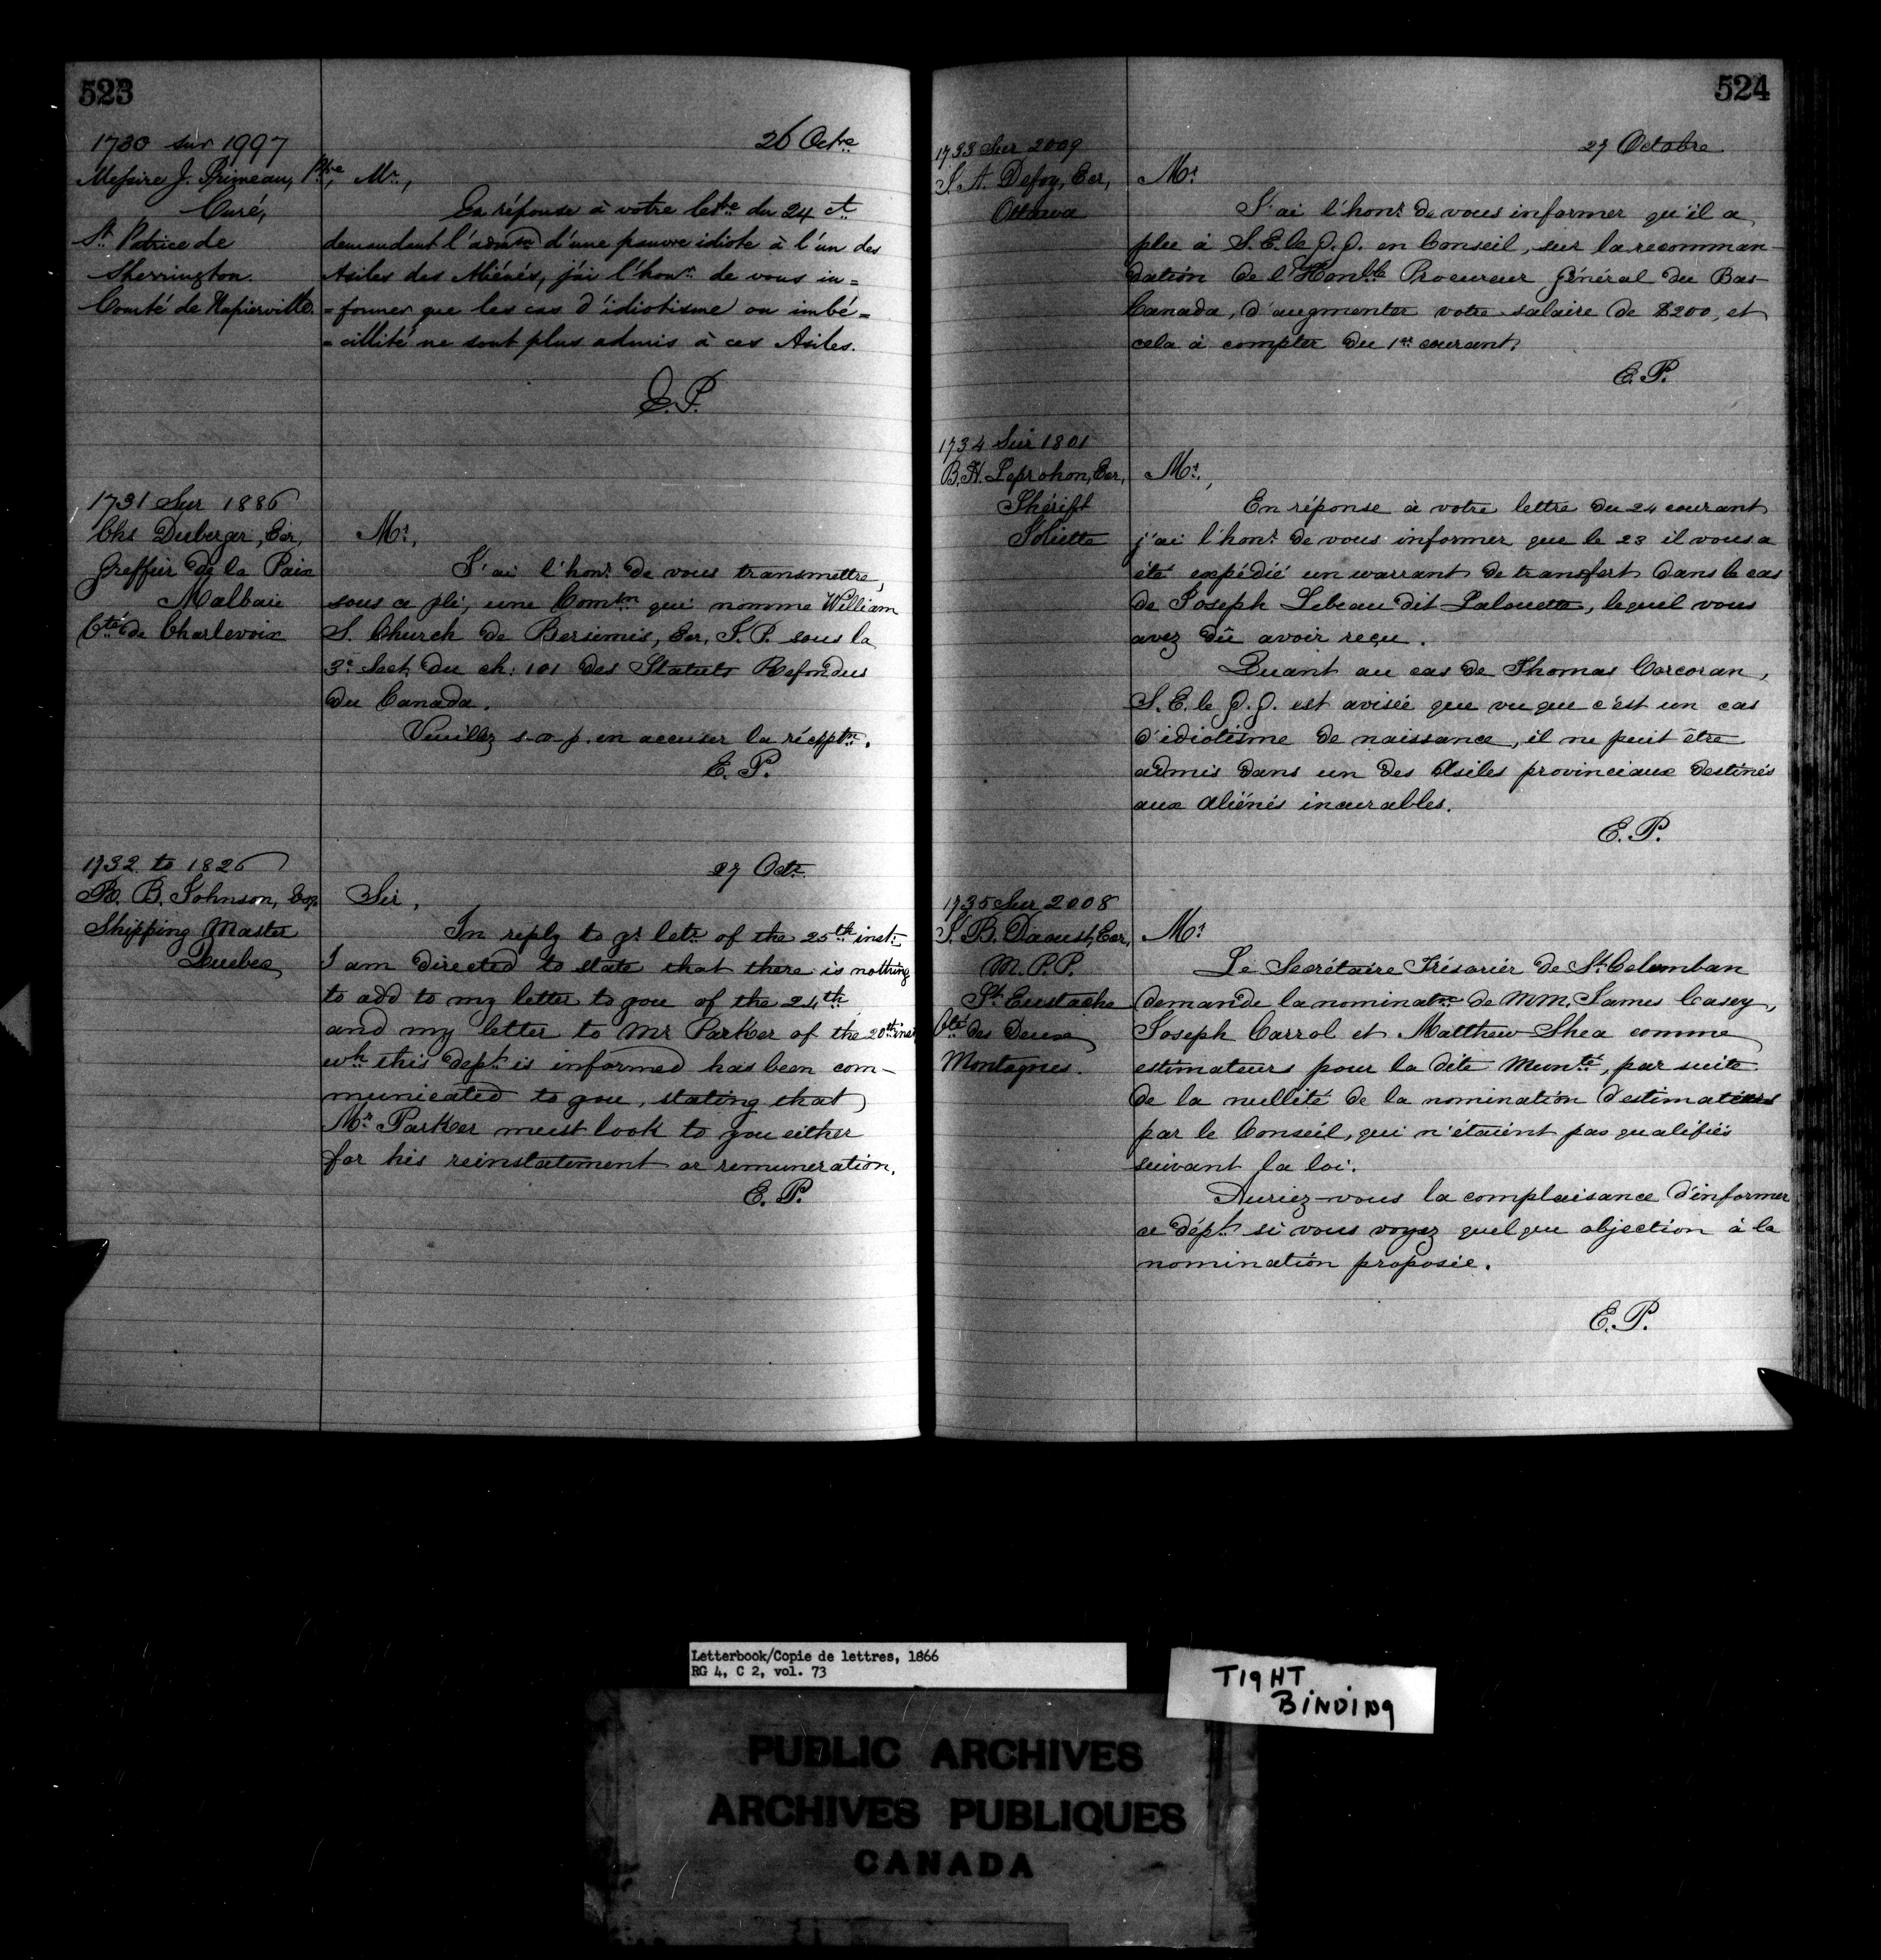 523
1730 sur 1997
26 Octre
Messire J. Primeau, Ptre,
Curé,
St. Patrice de
Sherrington.
Comté de Napierville.
Mr.,
En réponse à votre lettre du 24 ct
demandant l'admon d'une pauvre idiote à l'un des
Asiles des Aliénés, j'ai l'honr. de vous in=
=former que les cas d'idiotisme ou imbé=
=cillité ne sont plus admis à ces Asiles.
E.P.
1731 Sur 1886
Chs Duberger, Ecr,
Greffier de la Paix
Malbaie
Cté de Charlevoix
Mr.,
J'ai l'honr. de vous transmettre,
sous ce pli, une Comtn qui nomme William
S. Church de Bersimis, Ecr, J.P. sous la
3e Sect. du ch: 101 des Statuts Refondus
du Canada.
Veuillez s.v.p. en accuser la réceptn.
E.P.
1732 to 1826
27 Octr.
R. B. Johnson, Esqr.
Shipping Master
Quebec
Sir,
In reply to yr letr. of the 25th inst:
I am directed to state that there is nothing
to add to my letter to you of the 24th
and my letter to Mr Parker of the 20th inst
wh this dept. is informed has been com-
municated to you, stating that
Mr Parker must look to you either
for his reinstatement or remuneration.
E.P.
524
1733 Sur 2009
27 Octobre
S. A. Defoy, Ecr,
Ottawa
Mr.
J'ai l'honr. de vous informer qu'il a
plu à S.E. le G.G. en Conseil, sur la recomman-
dation de l'Honble Procureur Général du Bas-
Canada, d'augmenter votre salaire de $200, et
cela à compter du 1er courant.
E.P.
1734 Sur 1801
B. H. Leprohon, Ecr,
Shérift
Joliette
Mr.,
En réponse à votre lettre du 24 courant
j'ai l'honr. de vous informer que le 23 il vous a
été expédié un warrant de transfert dans le cas
de Joseph Lebeau dit Lalouette, lequel vous
avez dû avoir reçu.
Quant au cas de Thomas Corcoran,
S.E. le G.G. est avisée que vu que c'est un cas
d'idiotisme de naissance, il ne peut être
admis dans un des Asiles provinciaux destinés
aux aliénés incurables.
E.P.
1735 Sur 2008
J. B. Daoust, Ecr,
M.P.P.
St. Eustache
Cté des Deux
Montagnes.
Mr.
Le Secrétaire Trésorier de St. Columban
demande la nominatn de MM. James Casey,
Joseph Carrol et Matthew Shea comme
estimateurs pour la dite Munté, par suite
de la nullité de la nomination d'estimateurs
par le Conseil, qui n'étaient pas qualifiés
suivant la loi.
Auriez-vous la complaisance d'informer
ce dépt. si vous voyez quelque objection à la
nomination proposée.
E.P.
Letterbook/Copie de lettres, 1866
RG 4, C 2, vol. 73
TIGHT
BINDING
PUBLIC ARCHIVES
ARCHIVES PUBLIQUES
CANADA